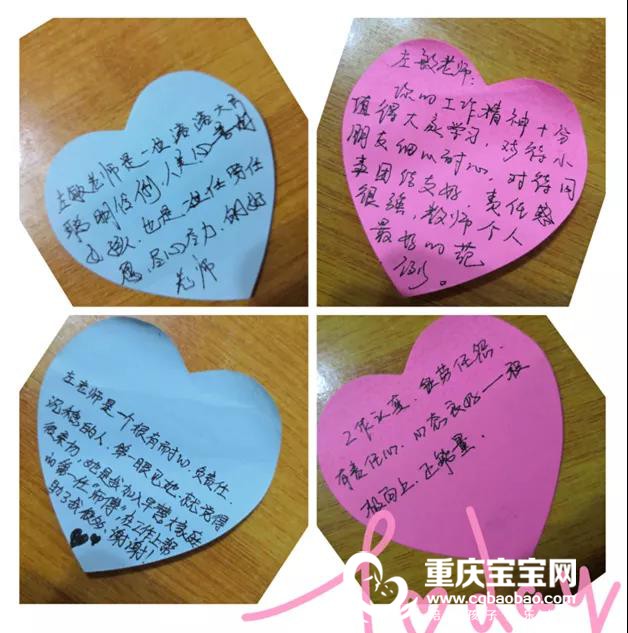 左敏老师是一位落落大方
聪明伶俐,人美心善的
女孩,也是一位任劳任
怨,尽心尽力,的好
老师
左敏老师:
你的工作精神十分
值得大家学习,对待小
朋友细心耐心,对待同
事团结友好,责任感
很强,教师个人
最好的范
例。
左老师是一个很有耐心,负责任,
沉稳的人,第一眼见她,就觉得
很亲切,她是我加入早慧大家庭
的第一任"师傅",在工作上帮
助了我很多,谢谢!
工作认真,任劳任怨,
有责任心,心态良好,一股
积极向上,正能量。
today
重庆宝宝网
www.cqbaobao.com